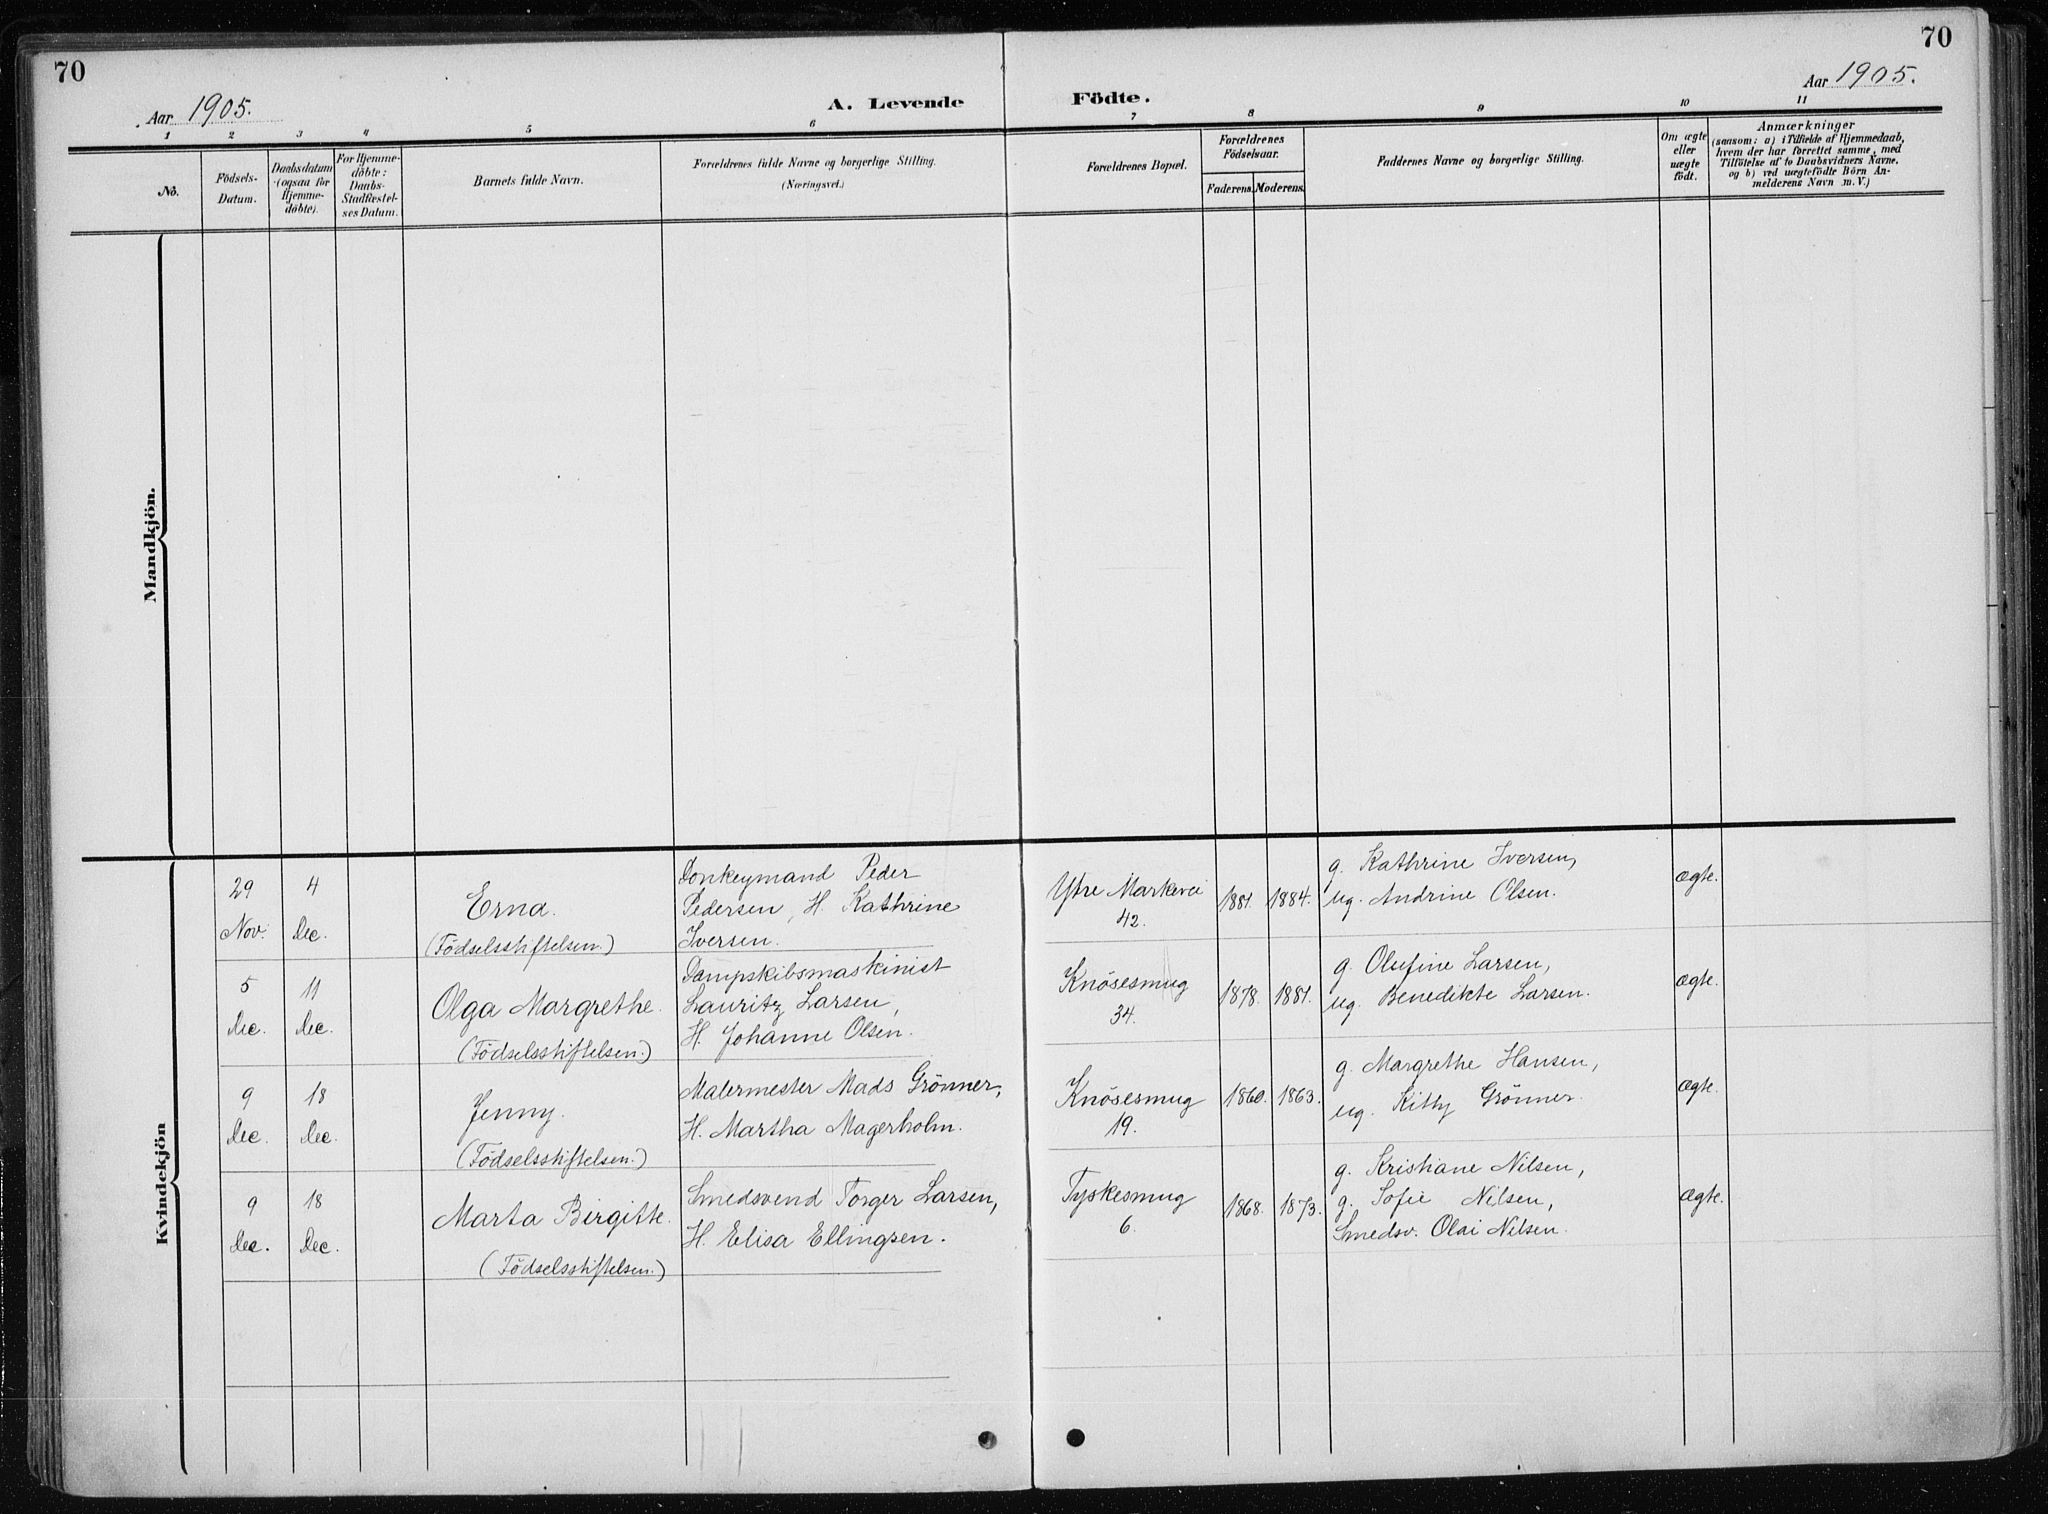 70
70
Aar 1905.
A. Levende Födte.
Aar 1905.
1 2 3 4 5 6 7 8 9 10 11
No.
Födsels-Datum.
Daabsdatum (ogsaa for Hjemmedöbte).
For Hjemmedöbte: Daabs-Stadfæstelses Datum.
Barnets fulde Navn.
Forældrenes fulde Navne og borgerlige Stilling.
(Næringsvei.)
Forældrenes Bopæl.
Forældrenes Födselsaar.
Faderens. Moderens.
Faddernes Navne og borgerlige Stilling.
Om ægte eller uægte födt.
Anmærkninger
(saasom: a) i Tilfælde af Hjemmedaab,
hvem der har forrettet samme, med
Tilföielse af to Daabsvidners Navne.
og b) ved uægtefödte Börn An-
melderens Navn m. V.)
Mandkjön.
Kvindekjön
29 Nov.
4 Dec.
Erna.
(Födselsstiftelsen.)
Donkeymand Peder
Pedersen, H. Kathrine
Iversen.
Ytre Markevei
42.
1881. 1884.
g. Kathrine Iversen,
ug. Andrine Olsen.
ægte.
5 Dec.
11 Dec.
Olga Margrethe.
(Födselsstiftelsen.)
Dampskibsmaskinist
Lauritz Larsen,
H. Johanne Olsen.
Knösesmug
34.
1878. 1881.
g. Olufine Larsen,
ug. Benedikte Larsen.
ægte.
9 Dec.
18 Dec.
Jenny.
(Födselsstiftelsen.)
Malermester Mads Grönner,
H. Martha Magerholm.
Knösesmug
19.
1860. 1863.
g. Margrethe Hansen,
ug. Kitty Grönner.
ægte.
9 Dec.
18 Dec.
Marta Birgitte.
(Födselsstiftelsen.)
Smedsvend Torger Larsen,
H. Elisa Ellingsen.
Tyskesmug
6.
1868. 1873.
g. Kristiane Nilsen,
g. Sofie Nilsen,
Smedsv. Olai Nilsen.
ægte.